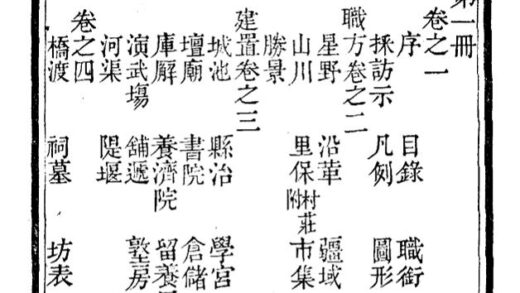 第一冊
卷之一
序 目錄 職銜
採訪示 凡例 圖形
職方卷之二
星野 沿革 疆域
山川 里保村莊附 市集
勝景
建置卷之三
城池 縣治 學宮
壇廟 書院 倉儲
庫廨 養濟院 留養
演武塲 舖遞 墪房
河渠 隄堰
卷之四
橋渡 祠墓 坊表